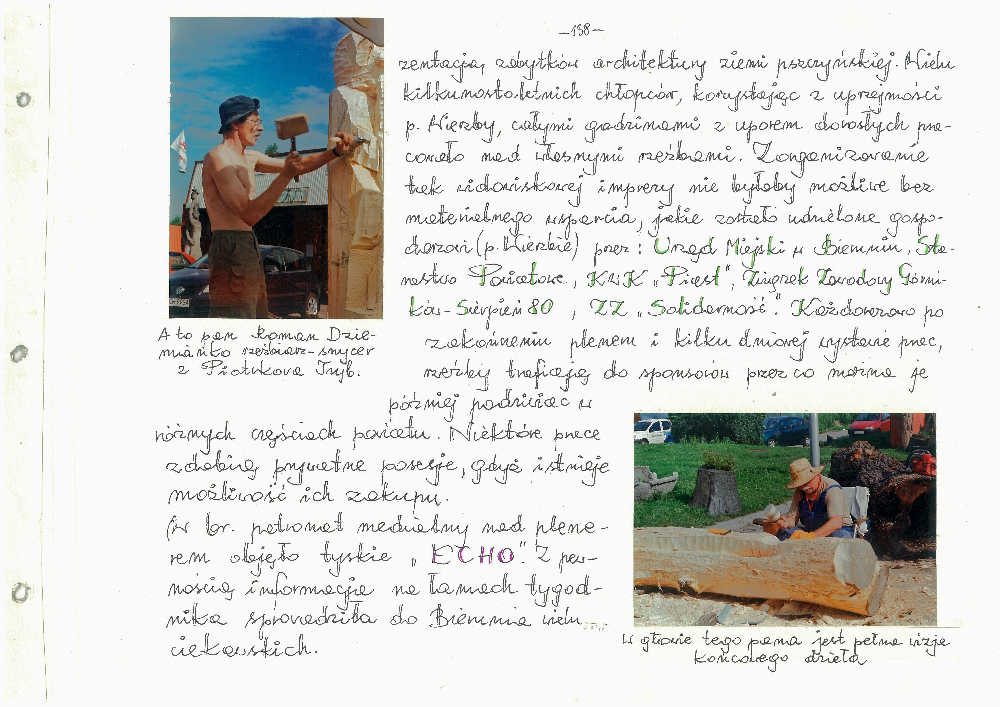 —138—
zentacją, zabytków architektury ziemi pszczyńskiej. Wielu
kilkunastoletnich chłopców, korzystając z uprzejmości
p. Wierzby, całymi godzinami z uporem dorosłych pra-
cowało nad własnymi rzeźbami. Zorganizowanie
tak widowiskowej imprezy nie byłoby możliwe bez
materialnego wsparcia, jakie zostało udzielone gospo-
darzowi (p. Wierzbie) przez: Urząd Miejski w Bieruniu, Sta-
rostwo Powiatowe, KWK „Piast", Związek Zawodowy Górni-
ków - Sierpień 80, ZZ „Solidarność". Każdorazowo po
zakończeniu pleneru i kilku dniowej wystawie prac,
rzeźby trafiają do sponsorów przez co można je
później podziwiać w
różnych częściach powiatu. Niektóre prace
zdobią prywatne posesje, gdyż istnieje
możliwość ich zakupu.
W br. patronat medialny nad plene-
rem objęło tyskie „ECHO". Z pew-
nością informacja na łamach tygod-
nika sprowadziła do Bierunia wielu
ciekawskich.
A to pan Roman Dzie-
miańko rzeźbiarz-snycerz
z Piotrkowa Tryb.
W głowie tego pana jest pełna wizja
końcowego dzieła